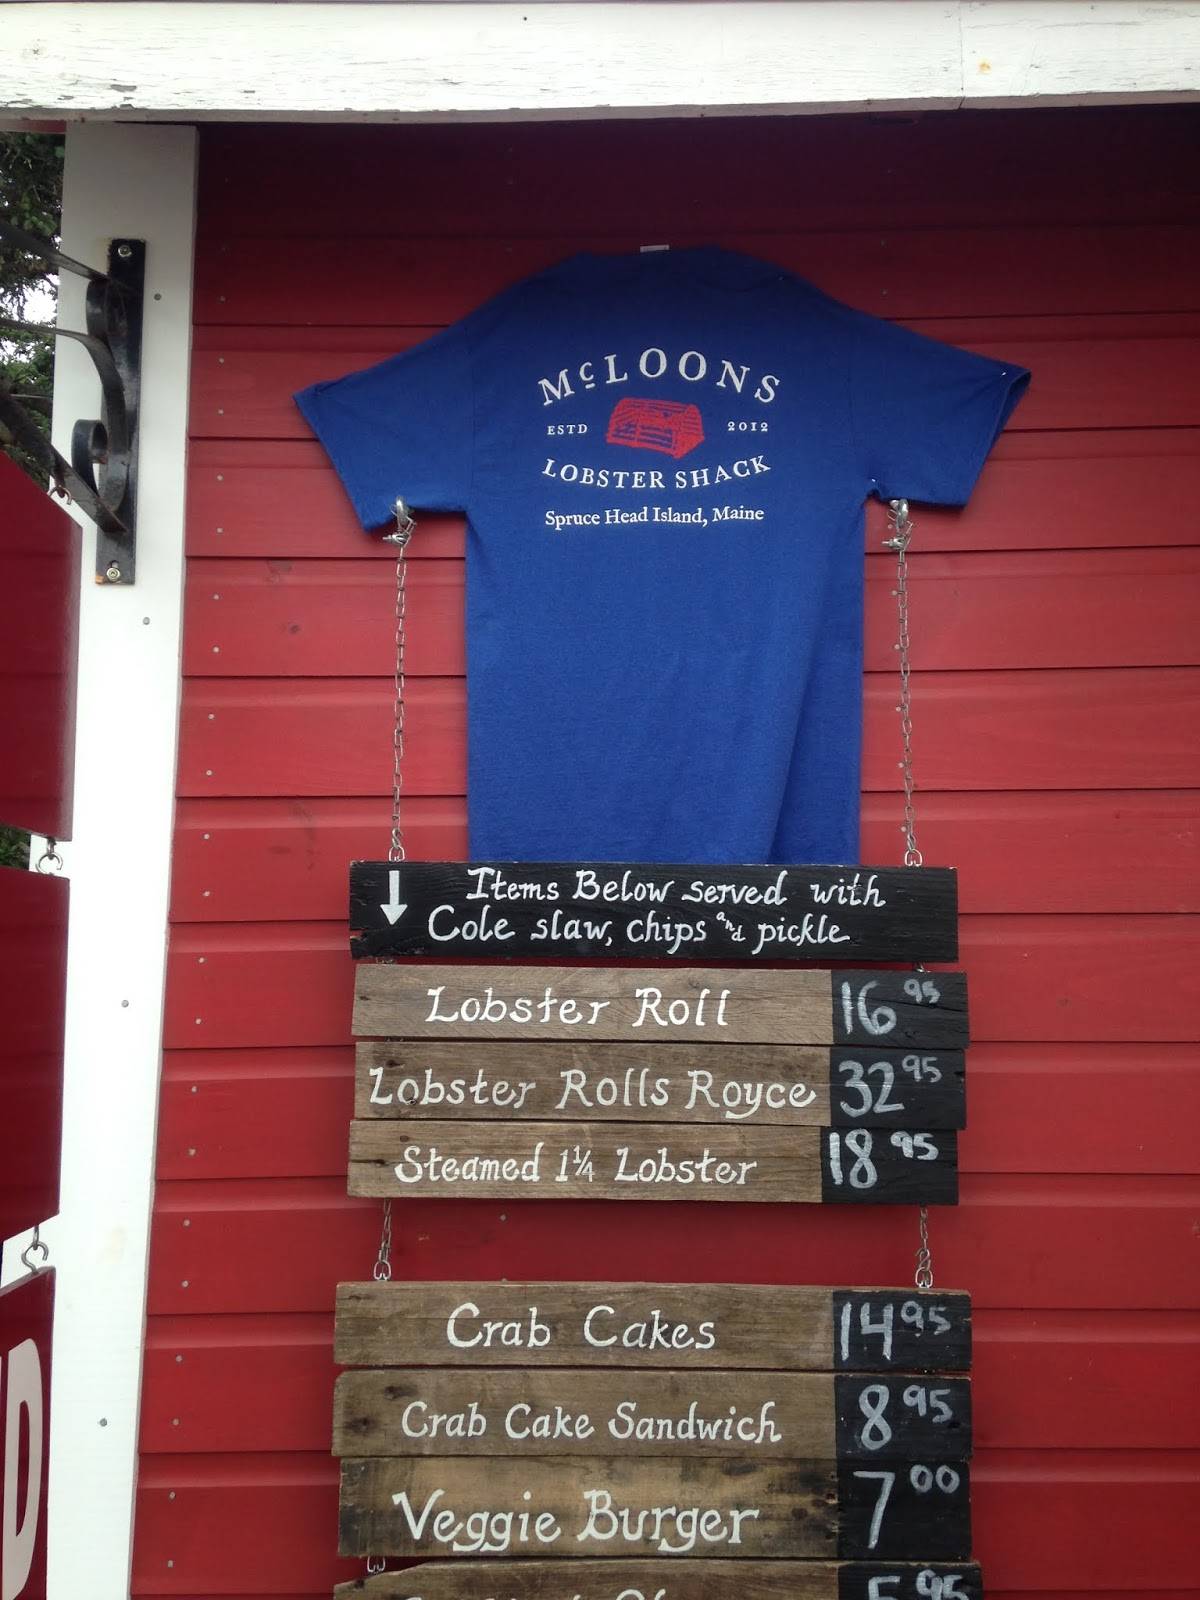 McLOONS
ESTD 2012
LOBSTER SHACK
Spruce Head Island, Maine
Items Below served with
Cole slaw, chips and pickle
Lobster Roll 16 95
Lobster Rolls Royce 32 95
Steamed 1¼ Lobster 18 95
Crab Cakes 14 95
Crab Cake Sandwich 8 95
Veggie Burger 7 00
5 95
D